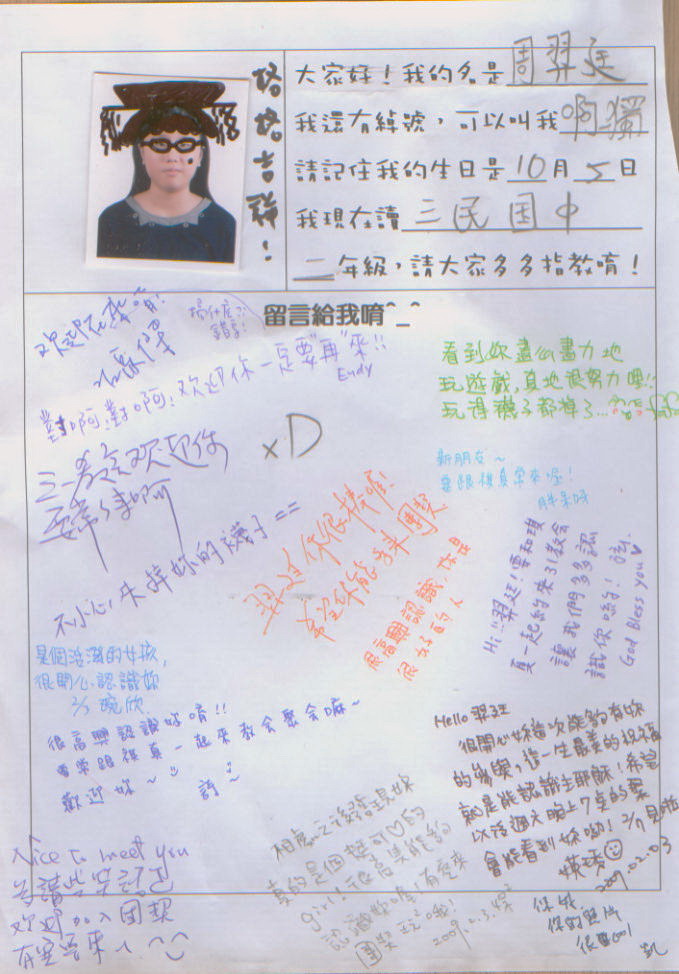 格格吉祥!
大家好!我的名是周羿廷
我還有綽號,可以叫我啊獨
請記住我的生日是10月5日
我現在讀三民国中
二年級,請大家多多指教唷!
留言給我唷^_^
搞什麼?!
錯字!
對啊!對啊!欢迎你一定要"再"來!!
Eudy
看到妳盡心盡力地
玩遊戲,真地很努力喔!!
玩得襪子都掉了...
xD
欢迎你
要常來啊
新朋友~
要跟棋真常來喔!
不小心失掉妳的襪子==
羿廷你很棒喔!
希望你能多來團契
很高興認識你
很好的人
Hi!!羿廷!要和
真一起約來3l教会
讓我們多多認
識你喲!
God Bless you♥
是個活潑的女孩,
很開心認識妳
2/3 琬欣
很高興認識妳唷!!
要常跟棋真一起來教会聚会嘛~
歡迎妳~
詩~
Hello 羿廷
很開心妳首次能夠有妳
的參與,這一生最美的祝福
就是能認識主耶穌!希望
以後週六晚上7点的聚
會能看到妳呦! 2/7見啦
瑛琇☺
2009.02.03
Nice to meet you
欢迎加入团契
有空常來
相處之後發現妳
真的是個挺可♡的
girl!很高興能夠
認識妳喔!有空來
團契玩哦!
2009.2.3.
你的照片
很酷cool
凱